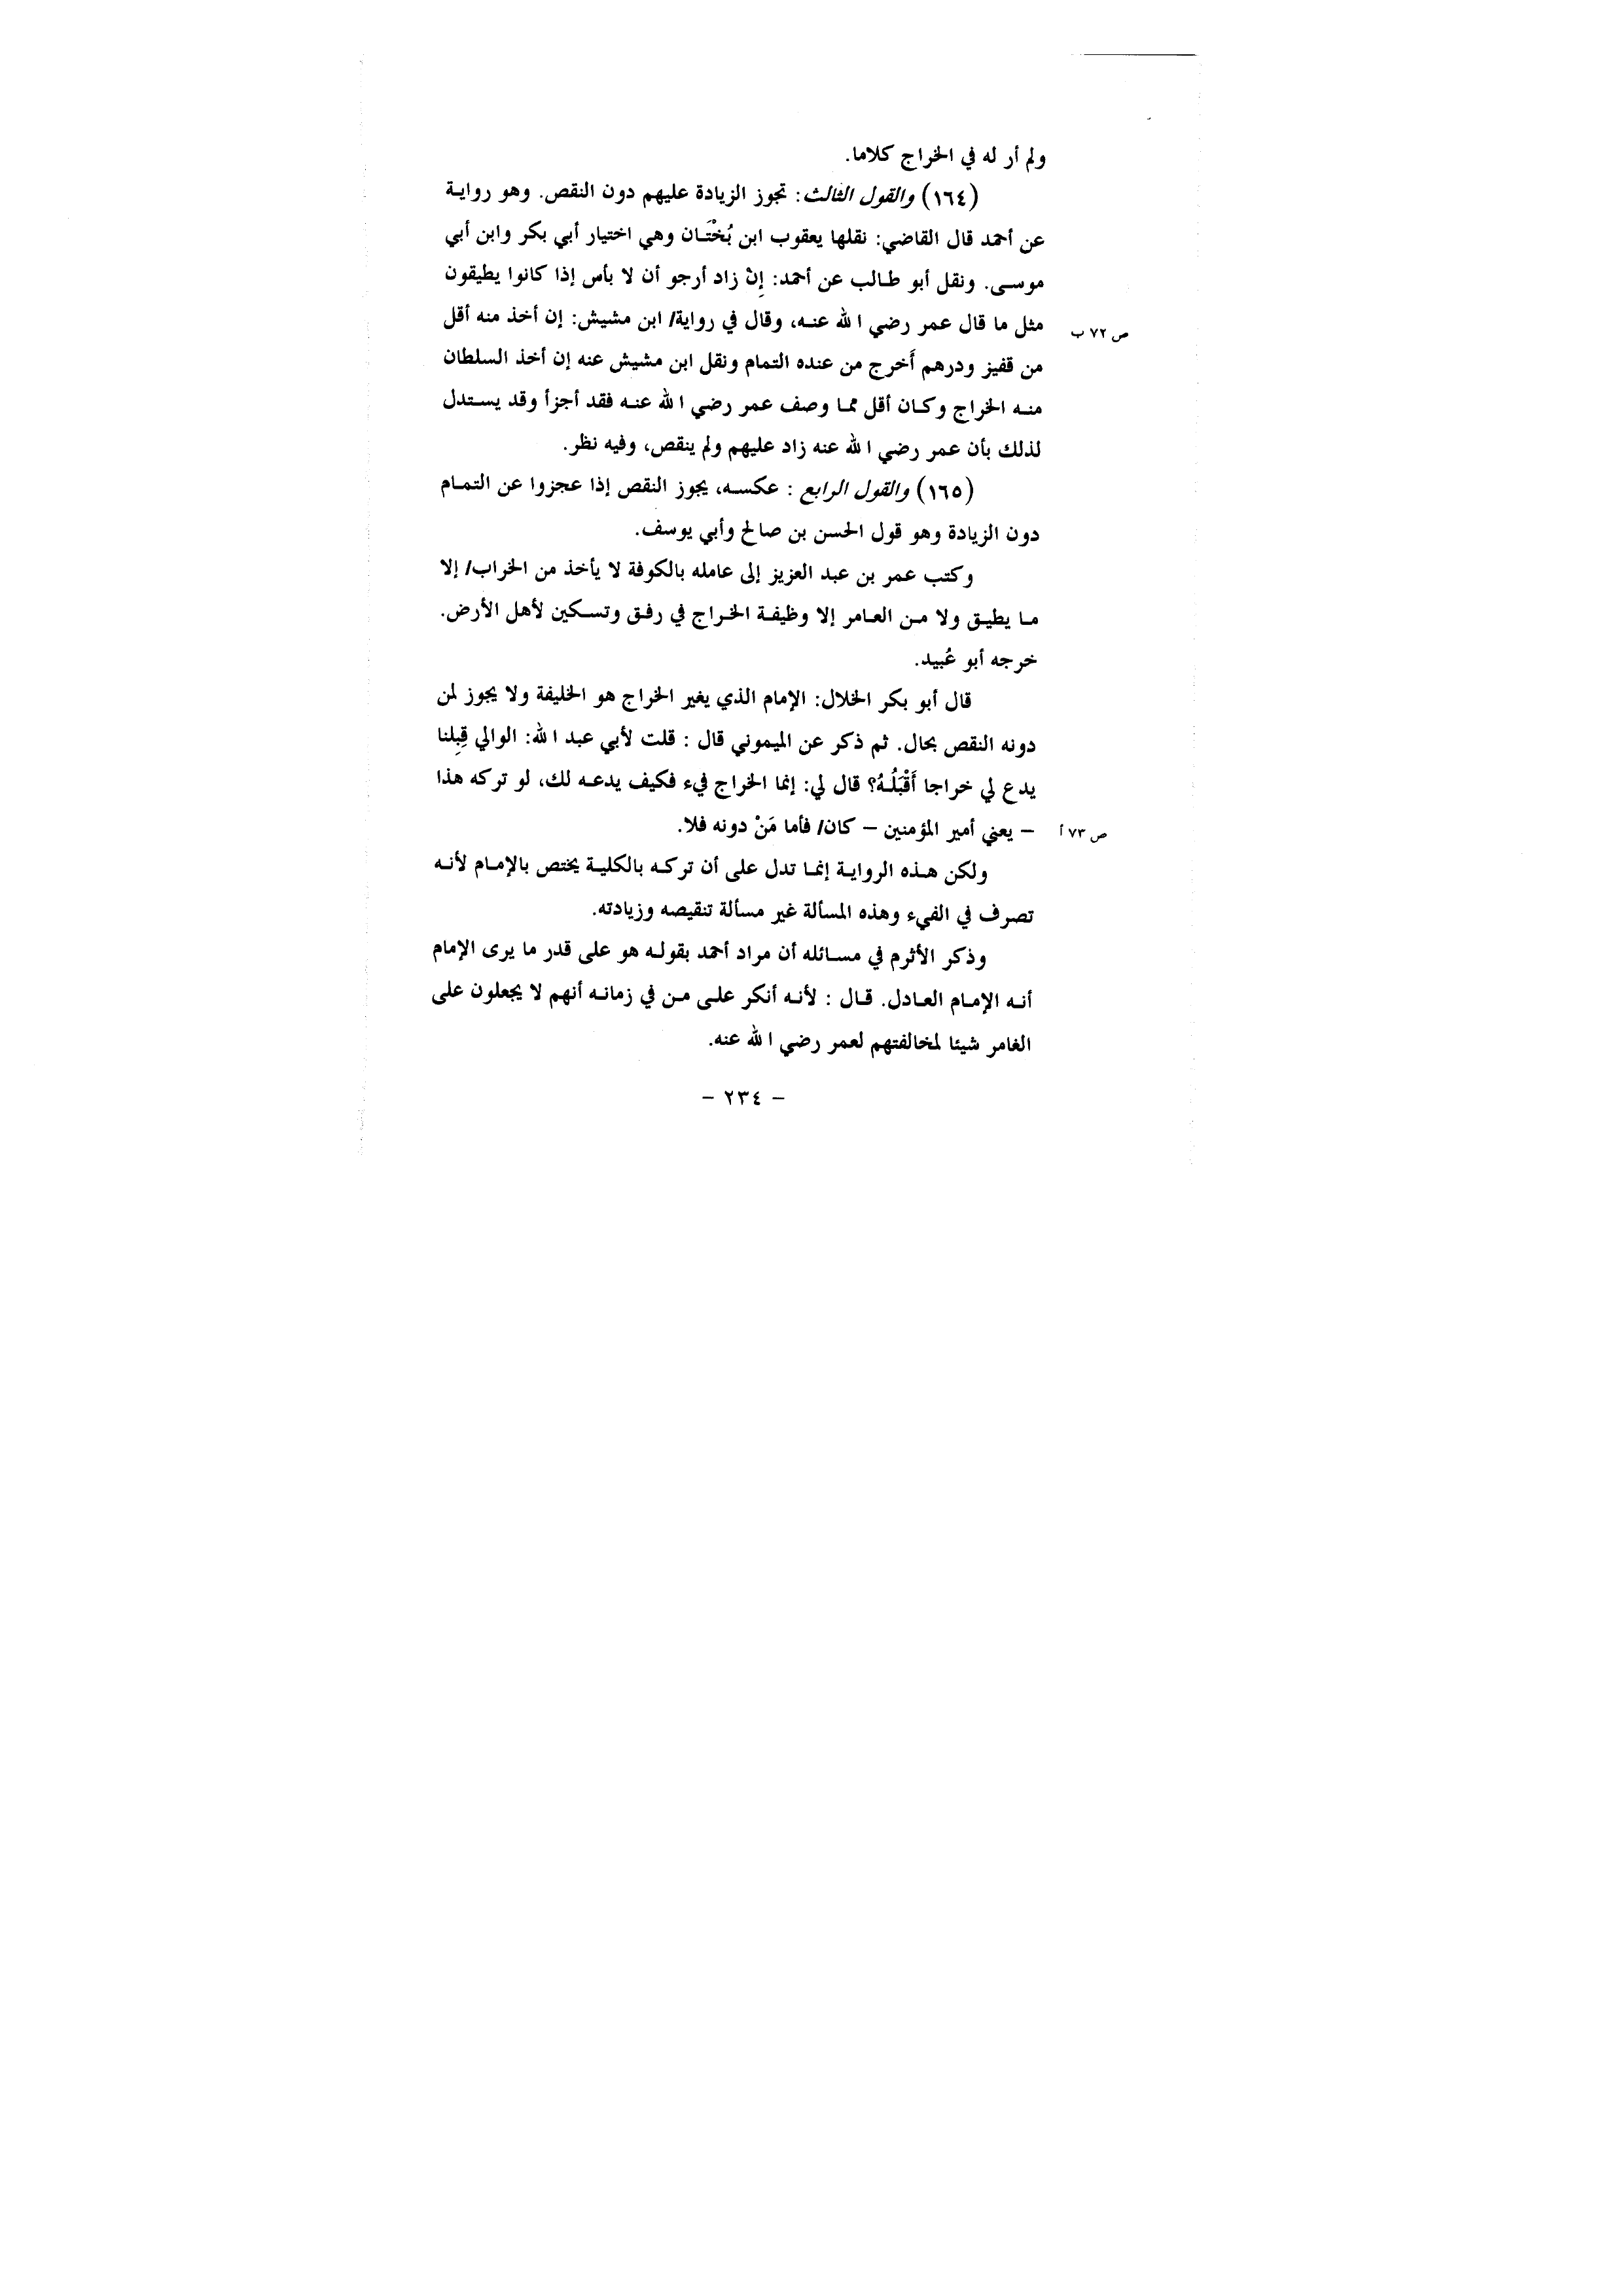 ولم أر له في الخراج كلاما.
(١٦٤) والقول الثالث: تجوز الزيادة عليهم دون النقص. وهو روايـة
عن أحمد قال القاضي: نقلها يعقوب ابن بُخْتَـان وهي اختيار أبي بكر وابن أبي
موسـى. ونقل أبو طـالب عن أحمد: إِنْ زاد أرجو أن لا بأس إذا كانوا يطيقون
مثل ما قال عمر رضي الله عنـه، وقال في رواية/ ابن مشيش: إن أخذ منه أقل
ص ٧٢ ب
من قفيز ودرهم أَخرج من عنده التمام ونقل ابن مشيش عنه إن أخذ السلطان
منـه الخراج وكـان أقل ممـا وصف عمر رضي الله عنـه فقد أجزأ وقد يسـتدل
لذلك بأن عمر رضي الله عنه زاد عليهم ولم ينقص، وفيه نظر.
(١٦٥) والقول الرابع : عكسـه، يجوز النقص إذا عجزوا عن التمـام
دون الزيادة وهو قول الحسن بن صالح وأبي يوسف.
وكتب عمر بن عبد العزيز إلى عامله بالكوفة لا يأخذ من الخراب/ إلا
مـا يطيـق ولا مـن العـامر إلا وظيفـة الخـراج في رفـق وتسـكين لأهل الأرض.
خرجه أبو عُبيد.
قال أبو بكر الخلال: الإمام الذي يغير الخراج هو الخليفة ولا يجوز لمن
دونه النقص بحال. ثم ذكر عن الميموني قال : قلت لأبي عبد الله: الوالي قِبِلنا
يدع لي خراجا أَقْبَلُـهُ؟ قال لي: إنما الخراج فيء فكيف يدعـه لك، لو تركه هذا
– يعني أمير المؤمنين – كان/ فأما مَنْ دونه فلا.
ص ٧٣ أ
ولكن هـذه الروايـة إنمـا تدل على أن تركـه بالكليـة يختص بالإمـام لأنـه
تصرف في الفيء وهذه المسألة غير مسألة تنقيصه وزيادته.
وذكر الأثرم في مسـائله أن مراد أحمد بقولـه هو على قدر ما يرى الإمام
أنـه الإمـام العـادل. قـال : لأنـه أنكر علـى مـن في زمانـه أنهم لا يجعلون على
الغامر شيئا لمخالفتهم لعمر رضي الله عنه.
– ٢٣٤ –